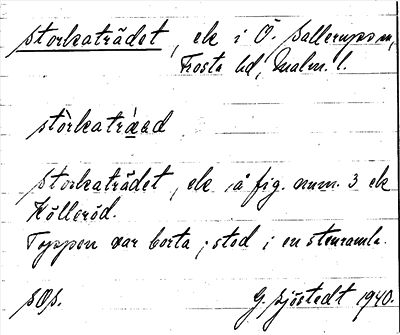 Storkaträdet, ek i Ö. Sallerups sn,
Frosta hd, Malm. l.
stòrkaträ́ad
Storkaträdet, ek å fig. num. 3 ek
Kölleröd.
Toppen var borta; stod i en stenramla.
SOS. G. Sjöstedt 1940.